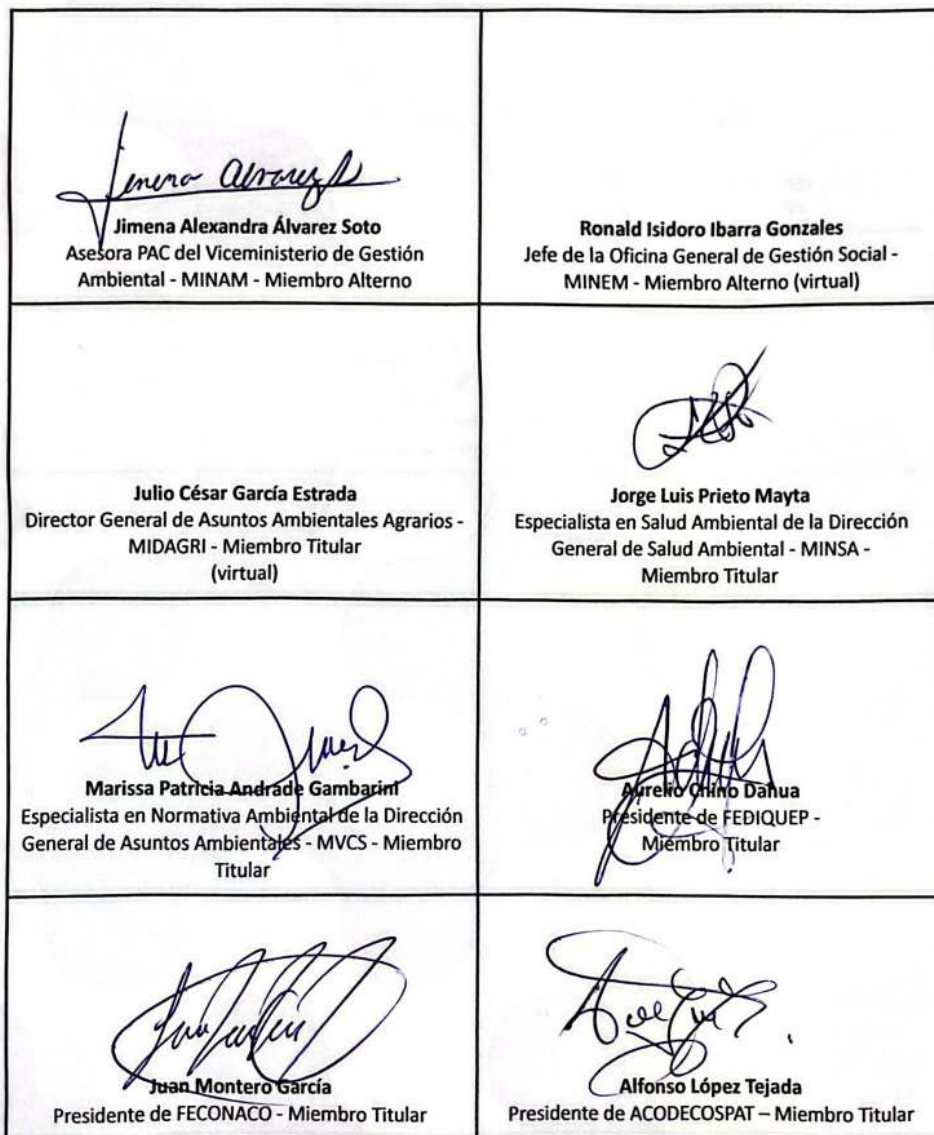 Jimena Alvarez S
Jimena Alexandra Álvarez Soto
Asesora PAC del Viceministerio de Gestión
Ambiental - MINAM - Miembro Alterno
Ronald Isidoro Ibarra Gonzales
Jefe de la Oficina General de Gestión Social -
MINEM - Miembro Alterno (virtual)
Julio César García Estrada
Director General de Asuntos Ambientales Agrarios -
MIDAGRI - Miembro Titular
(virtual)
Jorge Luis Prieto Mayta
Especialista en Salud Ambiental de la Dirección
General de Salud Ambiental - MINSA -
Miembro Titular
Marissa Patricia Andrade Gambarini
Especialista en Normativa Ambiental de la Dirección
General de Asuntos Ambientales - MVCS - Miembro
Titular
Aurelio Chino Dahua
Presidente de FEDIQUEP -
Miembro Titular
Juan Montero García
Presidente de FECONACO - Miembro Titular
Alfonso López Tejada
Presidente de ACODECOSPAT – Miembro Titular